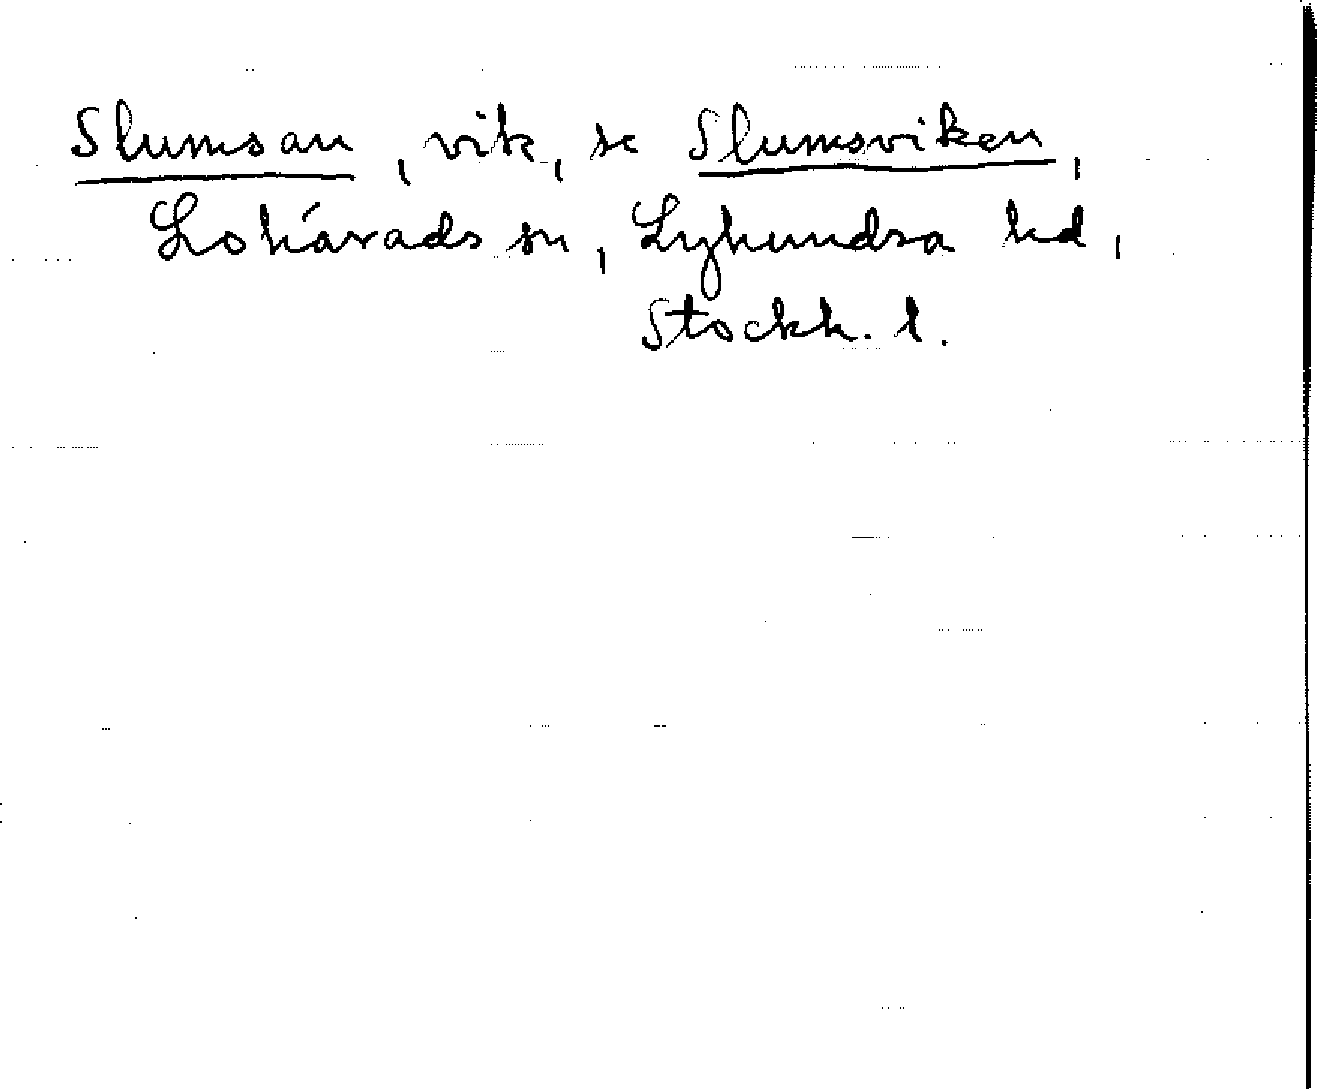 Slumsan, vik, se Slumsviken,
Lohärads sn, Lyhundra hd,
Stockh. l.